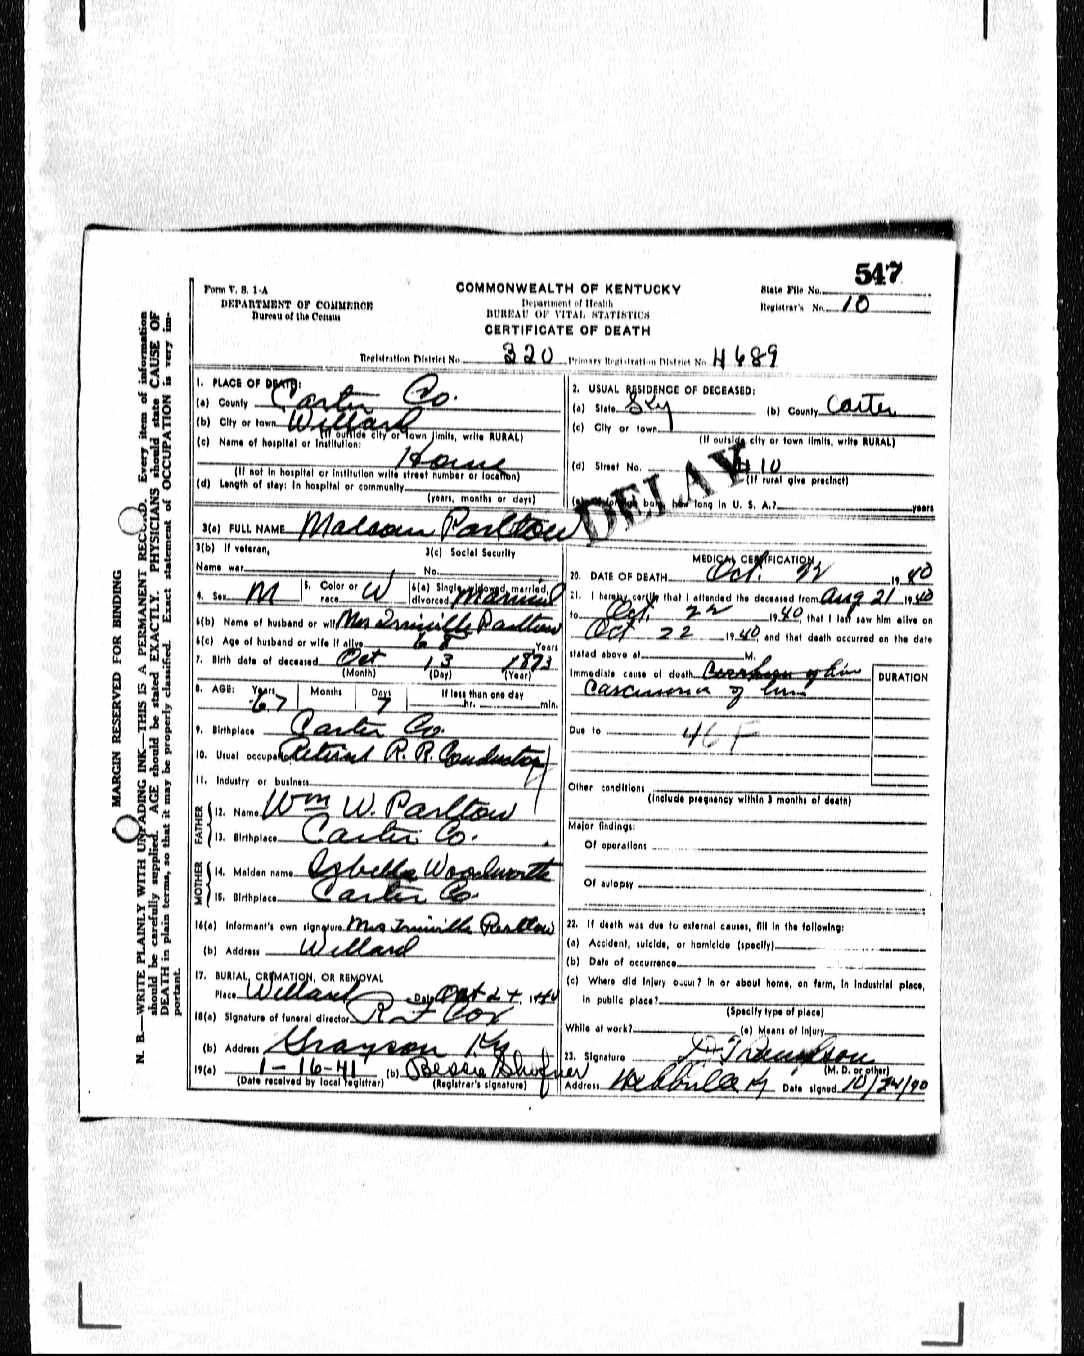 547
Form V. S. 1-A
DEPARTMENT OF COMMERCE
Bureau of the Census
COMMONWEALTH OF KENTUCKY
Department of Health
BUREAU OF VITAL STATISTICS
CERTIFICATE OF DEATH
State File No.
Registrar's No. 10
Registration District No. 320 Primary Registration District No. 4689
MARGIN RESERVED FOR BINDING
N. B.—WRITE PLAINLY WITH UNFADING INK—THIS IS A PERMANENT RECORD. Every item of information
should be carefully supplied. AGE should be stated EXACTLY. PHYSICIANS should state CAUSE OF
DEATH in plain terms, so that it may be properly classified. Exact statement of OCCUPATION is very im-
portant.
1. PLACE OF DEATH:
(a) County Carter Co.
(b) City or town Willard
(If outside city or town limits, write RURAL)
(c) Name of hospital or institution:
Home
(If not in hospital or institution write street number or location)
(d) Length of stay: In hospital or community
(years, months or days)
2. USUAL RESIDENCE OF DECEASED:
(a) State Ky (b) County Carter
(c) City or town
(If outside city or town limits, write RURAL)
(d) Street No. # 10
(If rural give precinct)
born how long in U. S. A.? years
DELAY
3(a) FULL NAME Parltow
3(b) If veteran,
Name war
3(c) Social Security
No.
4. Sex M 5. Color or race W 6(a) Single, widowed, married, divorced Married
6(b) Name of husband or wife Mrs Parltow
6(c) Age of husband or wife if alive 68 Years
7. Birth date of deceased Oct 13 1873
(Month) (Day) (Year)
8. AGE: Years 67 Months Days 7 If less than one day hr. min.
9. Birthplace Carter Co.
10. Usual occupation Retired R. R. Conductor
11. Industry or business
FATHER
12. Name Wm W. Parltow
13. Birthplace Carter Co.
MOTHER
14. Maiden name Woodworth
15. Birthplace Carter Co.
16(a) Informant's own signature Mrs Parltow
(b) Address Willard
17. BURIAL, CREMATION, OR REMOVAL
Place Willard Date Oct 24, 1940
18(a) Signature of funeral director R F Cox
(b) Address Grayson Ky
19(a) 1-16-41 (b) Bessie Shufner
(Date received by local registrar) (Registrar's signature)
MEDICAL CERTIFICATION
20. DATE OF DEATH Oct. 22, 1940
21. I hereby certify that I attended the deceased from Aug 21 1940
to Oct. 22 1940, that I last saw him alive on
Oct 22 1940, and that death occurred on the date
stated above at M.
Immediate cause of death
Carcinoma of
DURATION
Due to 46F
Other conditions
(Include pregnancy within 3 months of death)
Major findings:
Of operations
Of autopsy
22. If death was due to external causes, fill in the following:
(a) Accident, suicide, or homicide (specify)
(b) Date of occurrence
(c) Where did injury occur? In or about home, on farm, in industrial place,
in public place?
(Specify type of place)
While at work? (e) Means of injury
23. Signature
(M. D. or other)
Address Webbville Ky Date signed 10/24/40